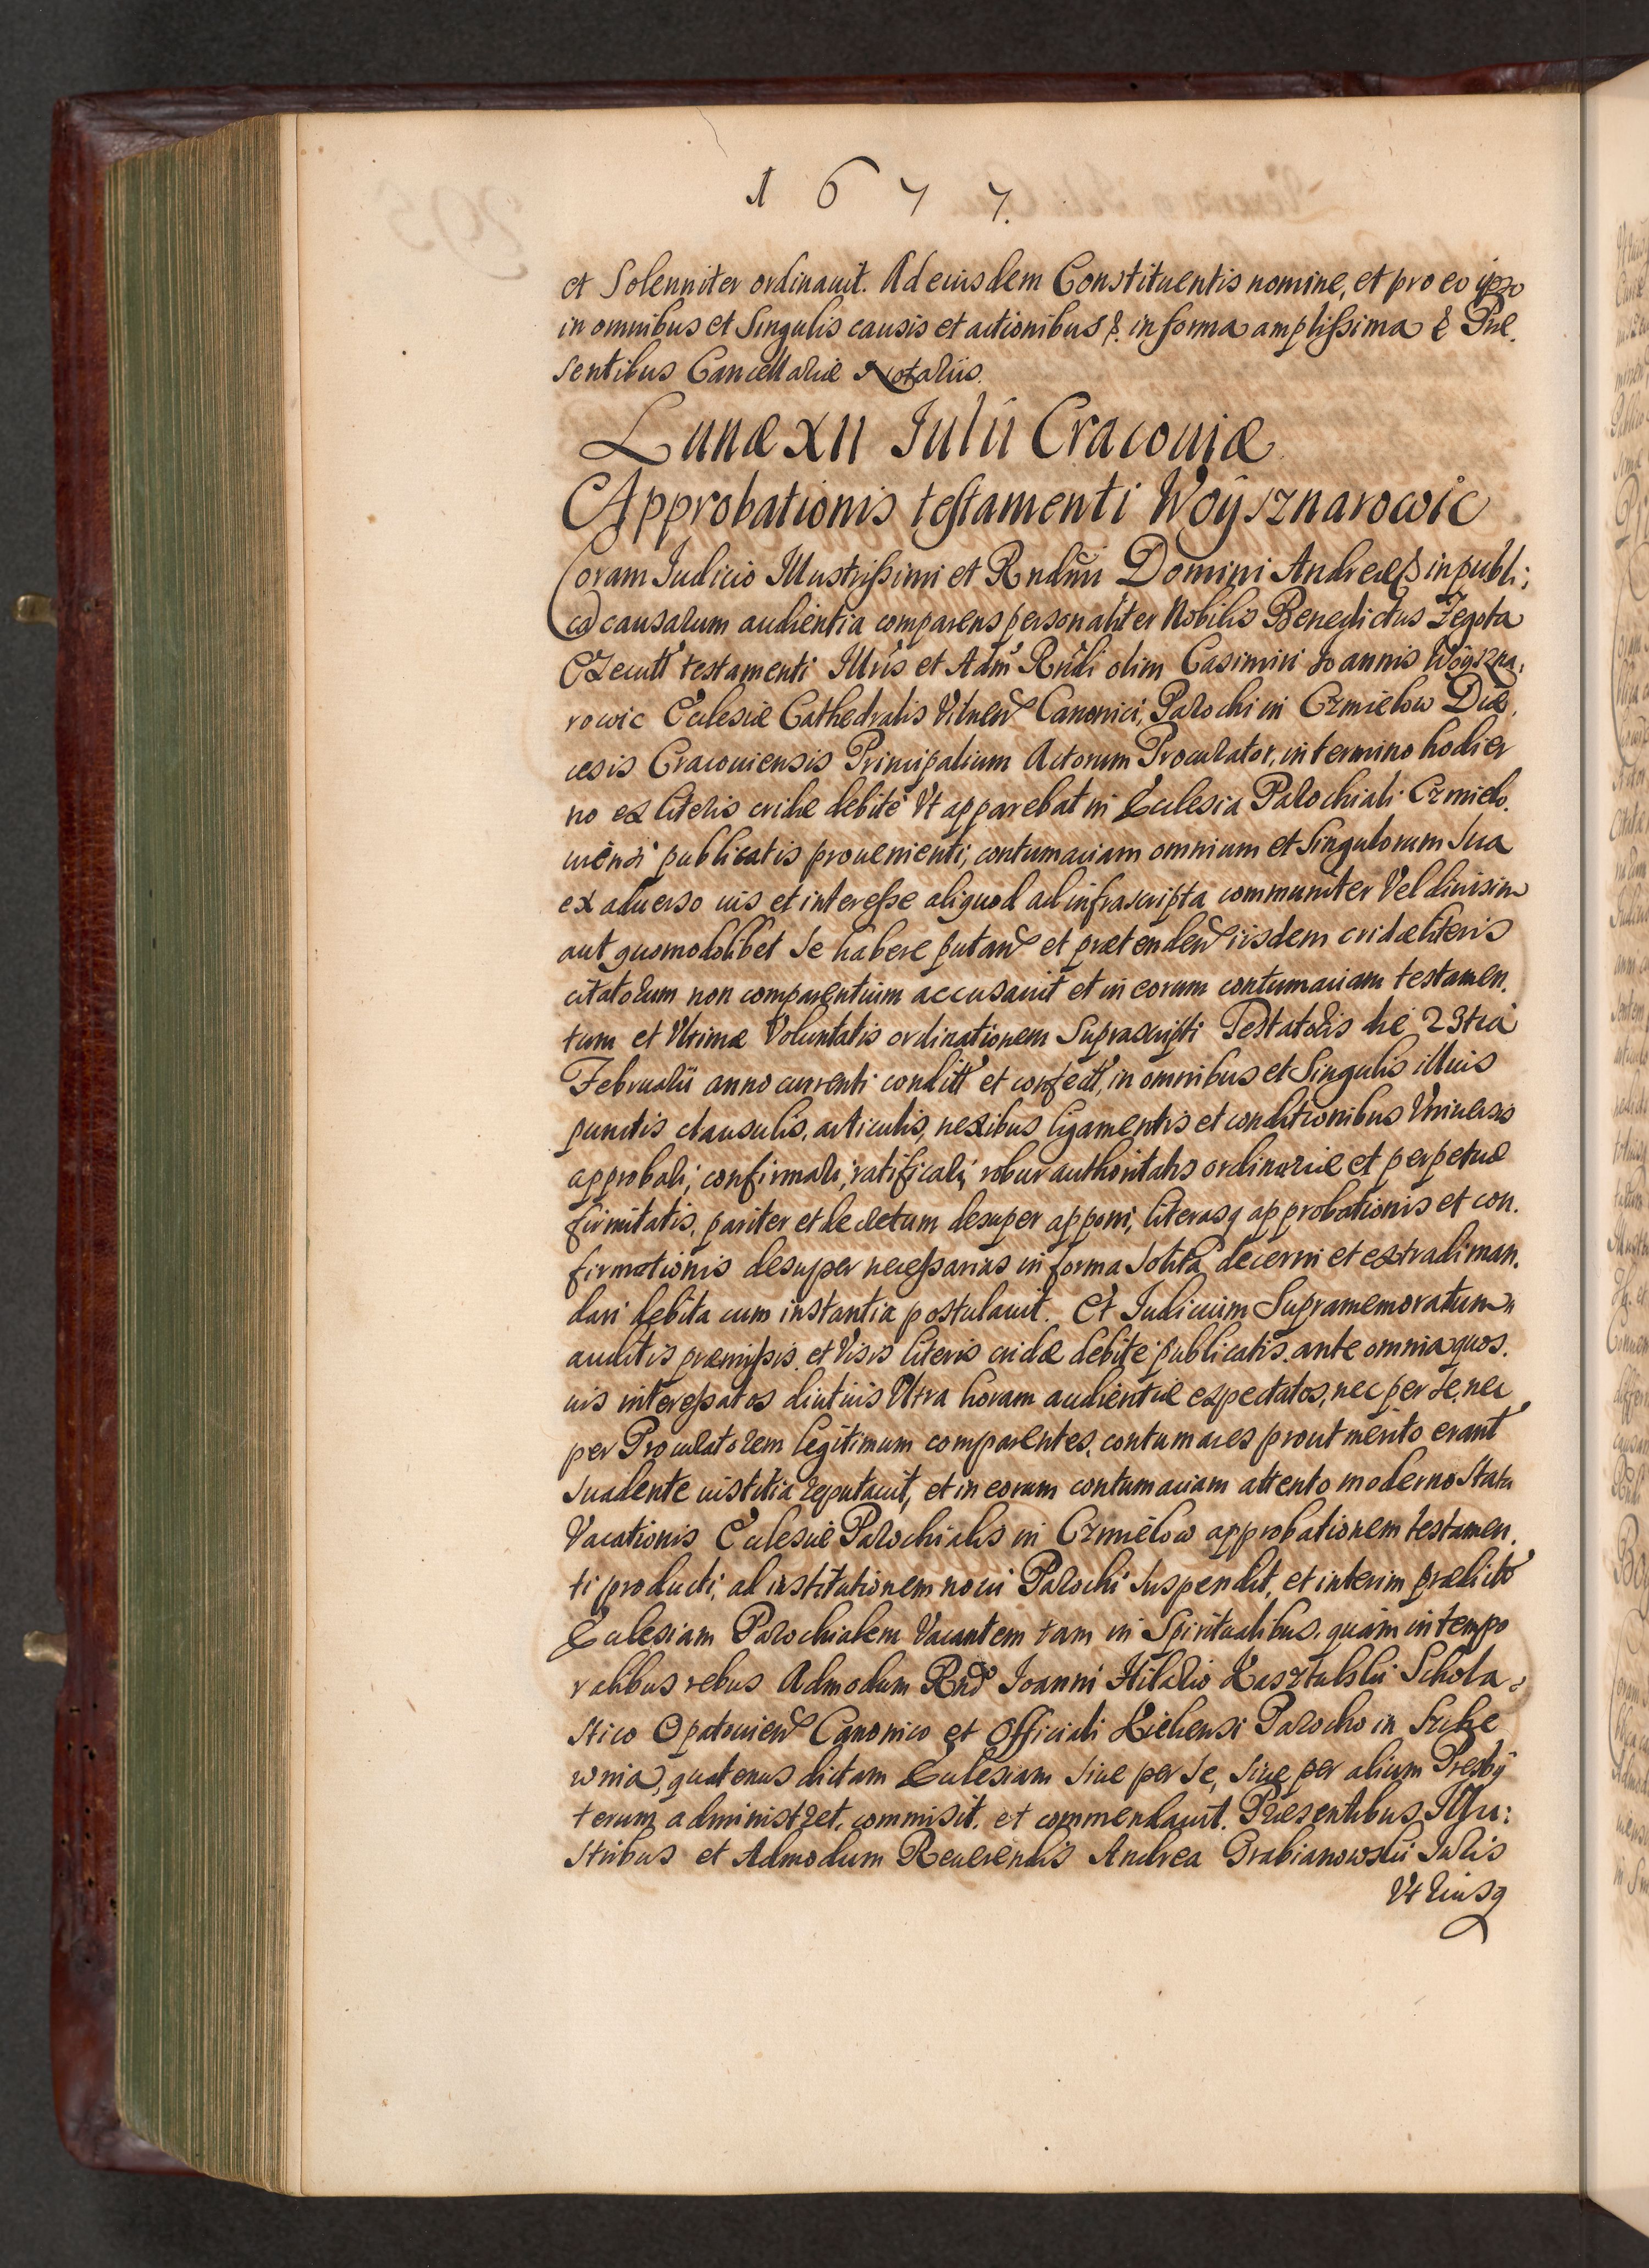 1 6 7 7.
et Solenniter ordinauit. Ad eiusdem Constituentis nomine, et pro eo ipso
in omnibus et Singulis causis et actionibus &. in forma amplissima & Præ.
sentibus Cancellariæ Notariis.
Lunæ XII Iulii Cracouiæ
Approbationis testamenti Woÿsznarowic
Coram Iudicio Illustrissimi et Rndmi Domini Andreæ & in publi:
ca causarum audientia comparens personaliter Nobilis Benedictus Zegota
Execut testamenti Illris et Adm Rndi olim Casimiri Joannis Woÿszna,
rowic Ecclesiæ Cathedralis Vilnen Canonici, Parochi in Czmielow Diæ,
cesis Cracouiensis Principalium Actorum Procurator, in termino hodier
no ex literis cridæ debite Vt apparebat in Ecclesia Parochiali Czmielo.
uiensi publicatis prouenienti, contumaciam omnium et Singulorum Sua
ex aduerso ius et interesse aliquod ad infrascripta communiter Vel diuisim
aut quomodolibet Se habere putan et prætenden iisdem cridæ literis
citatorum non comparentium accusauit et in eorum contumaciam testamen.
tum et Vltimæ Voluntatis ordinationem Suprascripti Testatoris die 23tia
Februarii anno currenti condit et confect, in omnibus et Singulis illius
punctis clausulis, articulis, nexibus ligamentis et conditionibus Vniuersis
approbari, confirmari, ratificari, robur authoritatis ordinariæ et perpetuæ
firmitatis, pariter et decretum desuper apponi, literasq approbationis et con.
firmationis desuper necessarias in forma Solita decerni et extradi man.
dari debita cum instantia postulauit. Et Iudicium Supramemoratum
auditis præmissis. et Visis literis cridæ debite publicatis. ante omnia quos.
uis interessatos diutius Vltra horam audientiæ expectatos, nec per Se, nec
per Procuratorem legitimum comparentes, contumaces prout merito erant
Suadente iustitia reputauit, et in eorum contumaciam attento moderno Statu
Vacationis Ecclesiæ Parochialis in Czmielow approbationem testamen.
ti producti, ad institutionem noui Parochi Suspendit, et interim prædict
Ecclesiam Parochialem Vacantem tam in Spiritualibus. quam in tempo
ralibus rebus Admodum Rnd Joanni Hilario Kasztulski Schola,
Stico Opatouien Canonico et Officiali Kielcensi Parocho in
wnia, quatenus dictam Ecclesiam Siue per Se, Siue per alium Presbÿ
terum administret, commisit, et commendauit. Præsentibus Illu:
Stribus et Admodum Reuerendis Andrea Grabianowski Iuris
Vtriusq